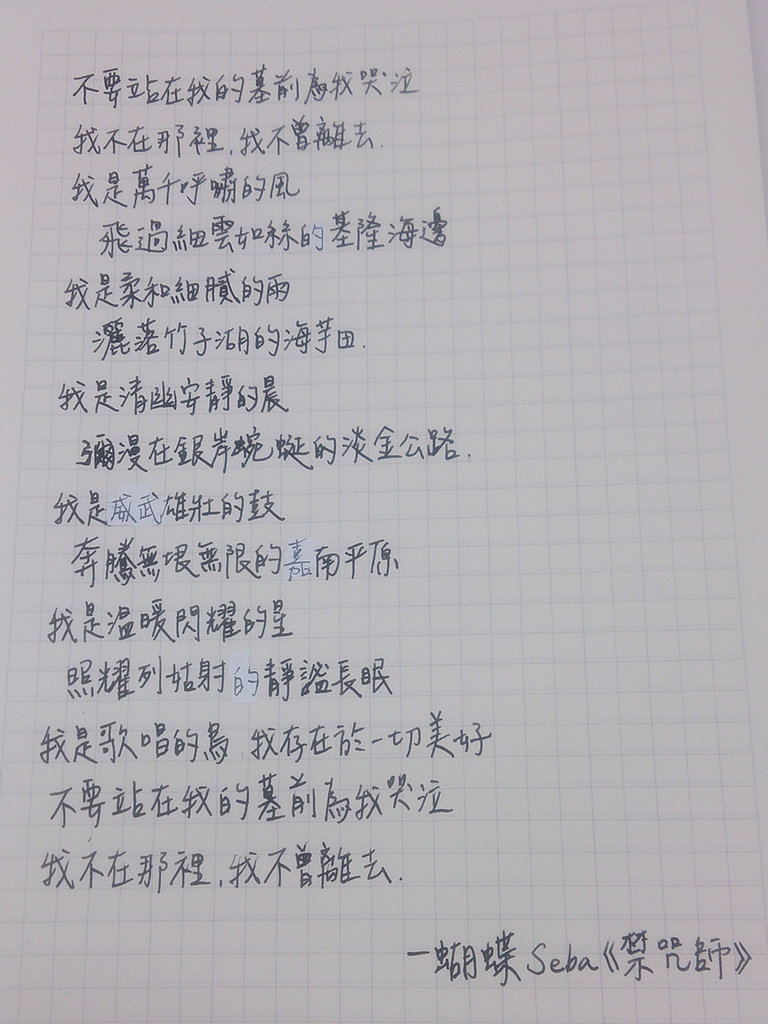 不要站在我的墓前為我哭泣
我不在那裡,我不曾離去.
我是萬千呼嘯的風
飛過細雲如絲的基隆海邊
我是柔和細膩的雨
灑落竹子湖的海芋田.
我是清幽安靜的晨
瀰漫在銀岸蜿蜒的淡金公路.
我是威武雄壯的鼓
奔騰無垠無限的嘉南平原
我是溫暖閃耀的星
照耀列姑射的靜謐長眠
我是歌唱的鳥 我存在於一切美好
不要站在我的墓前為我哭泣
我不在那裡,我不曾離去.
—蝴蝶Seba《禁咒師》